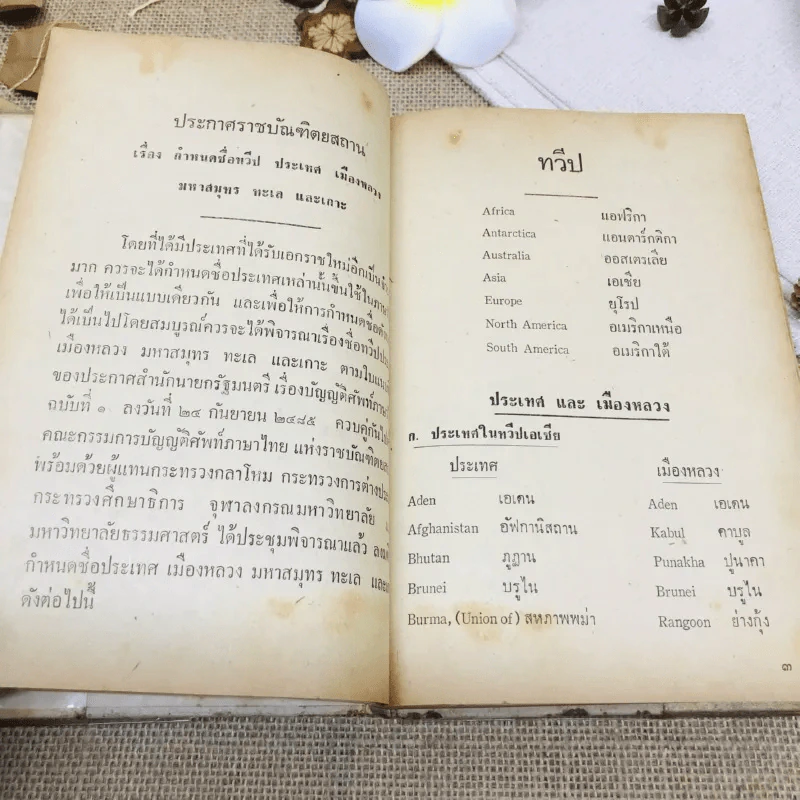 ประกาศราชบัณฑิตยสถาน
เรื่อง กำหนดชื่อทวีป ประเทศ เมืองหลวง
มหาสมุทร ทะเล และเกาะ
โดยที่ได้มีประเทศที่ได้รับเอกราชใหม่อีกเป็น
มาก ควรจะได้กำหนดชื่อประเทศเหล่านั้นขึ้นใช้ใน
เพื่อให้เป็นแบบเดียวกัน และเพื่อให้การกำหนดชื่อ
ได้เป็นไปโดยสมบูรณ์ควรจะได้พิจารณาเรื่องชื่อทวีป
เมืองหลวง มหาสมุทร ทะเล และเกาะ ตาม
ของประกาศสำนักนายกรัฐมนตรี เรื่องบัญญัติศัพท์
ฉบับที่ ๑ ลงวันที่ ๒๔ กันยายน ๒๔๘๕ ควบคู่กัน
คณะกรรมการบัญญัติศัพท์ภาษาไทย แห่ง
พร้อมด้วยผู้แทนกระทรวงกลาโหม กระทรวงการ
กระทรวงศึกษาธิการ จุฬาลงกรณมหาวิทยาลัย
มหาวิทยาลัยธรรมศาสตร์ ได้ประชุมพิจารณาแล้ว
กำหนดชื่อประเทศ เมืองหลวง มหาสมุทร ทะเล
ดังต่อไปนี้
ทวีป
Africa แอฟริกา
Antarctica แอนตาร์กติกา
Australia ออสเตรเลีย
Asia เอเชีย
Europe ยุโรป
North America อเมริกาเหนือ
South America อเมริกาใต้
ประเทศ และ เมืองหลวง
ก. ประเทศในทวีปเอเชีย
ประเทศ เมืองหลวง
Aden เอเดน Aden เอเดน
Afghanistan อัฟกานิสถาน Kabul คาบูล
Bhutan ภูฏาน Punakha ปูนาคา
Brunei บรูไน Brunei บรูไน
Burma, (Union of) สหภาพพม่า Rangoon ย่างกุ้ง
๓